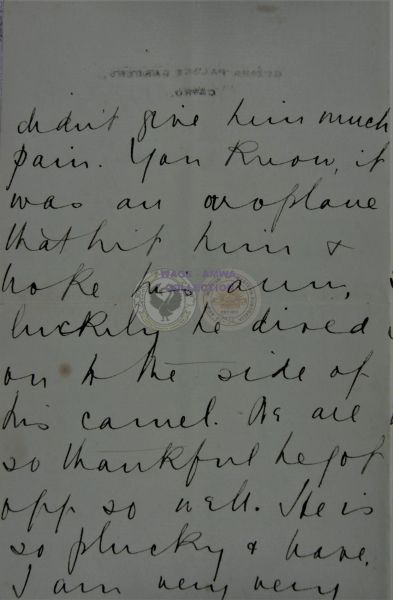 GEZIRA PALACE GARDENS,
CAIRO.
didn't give him much
pain. You know, it
was an aeroplane
that hit him &
broke his arm,
luckily he dived
on to the side of
his camel. We are
so thankful he got
off so well. He is
so plucky & brave.
I am very very
WAGS - AMWA
COLLECTION